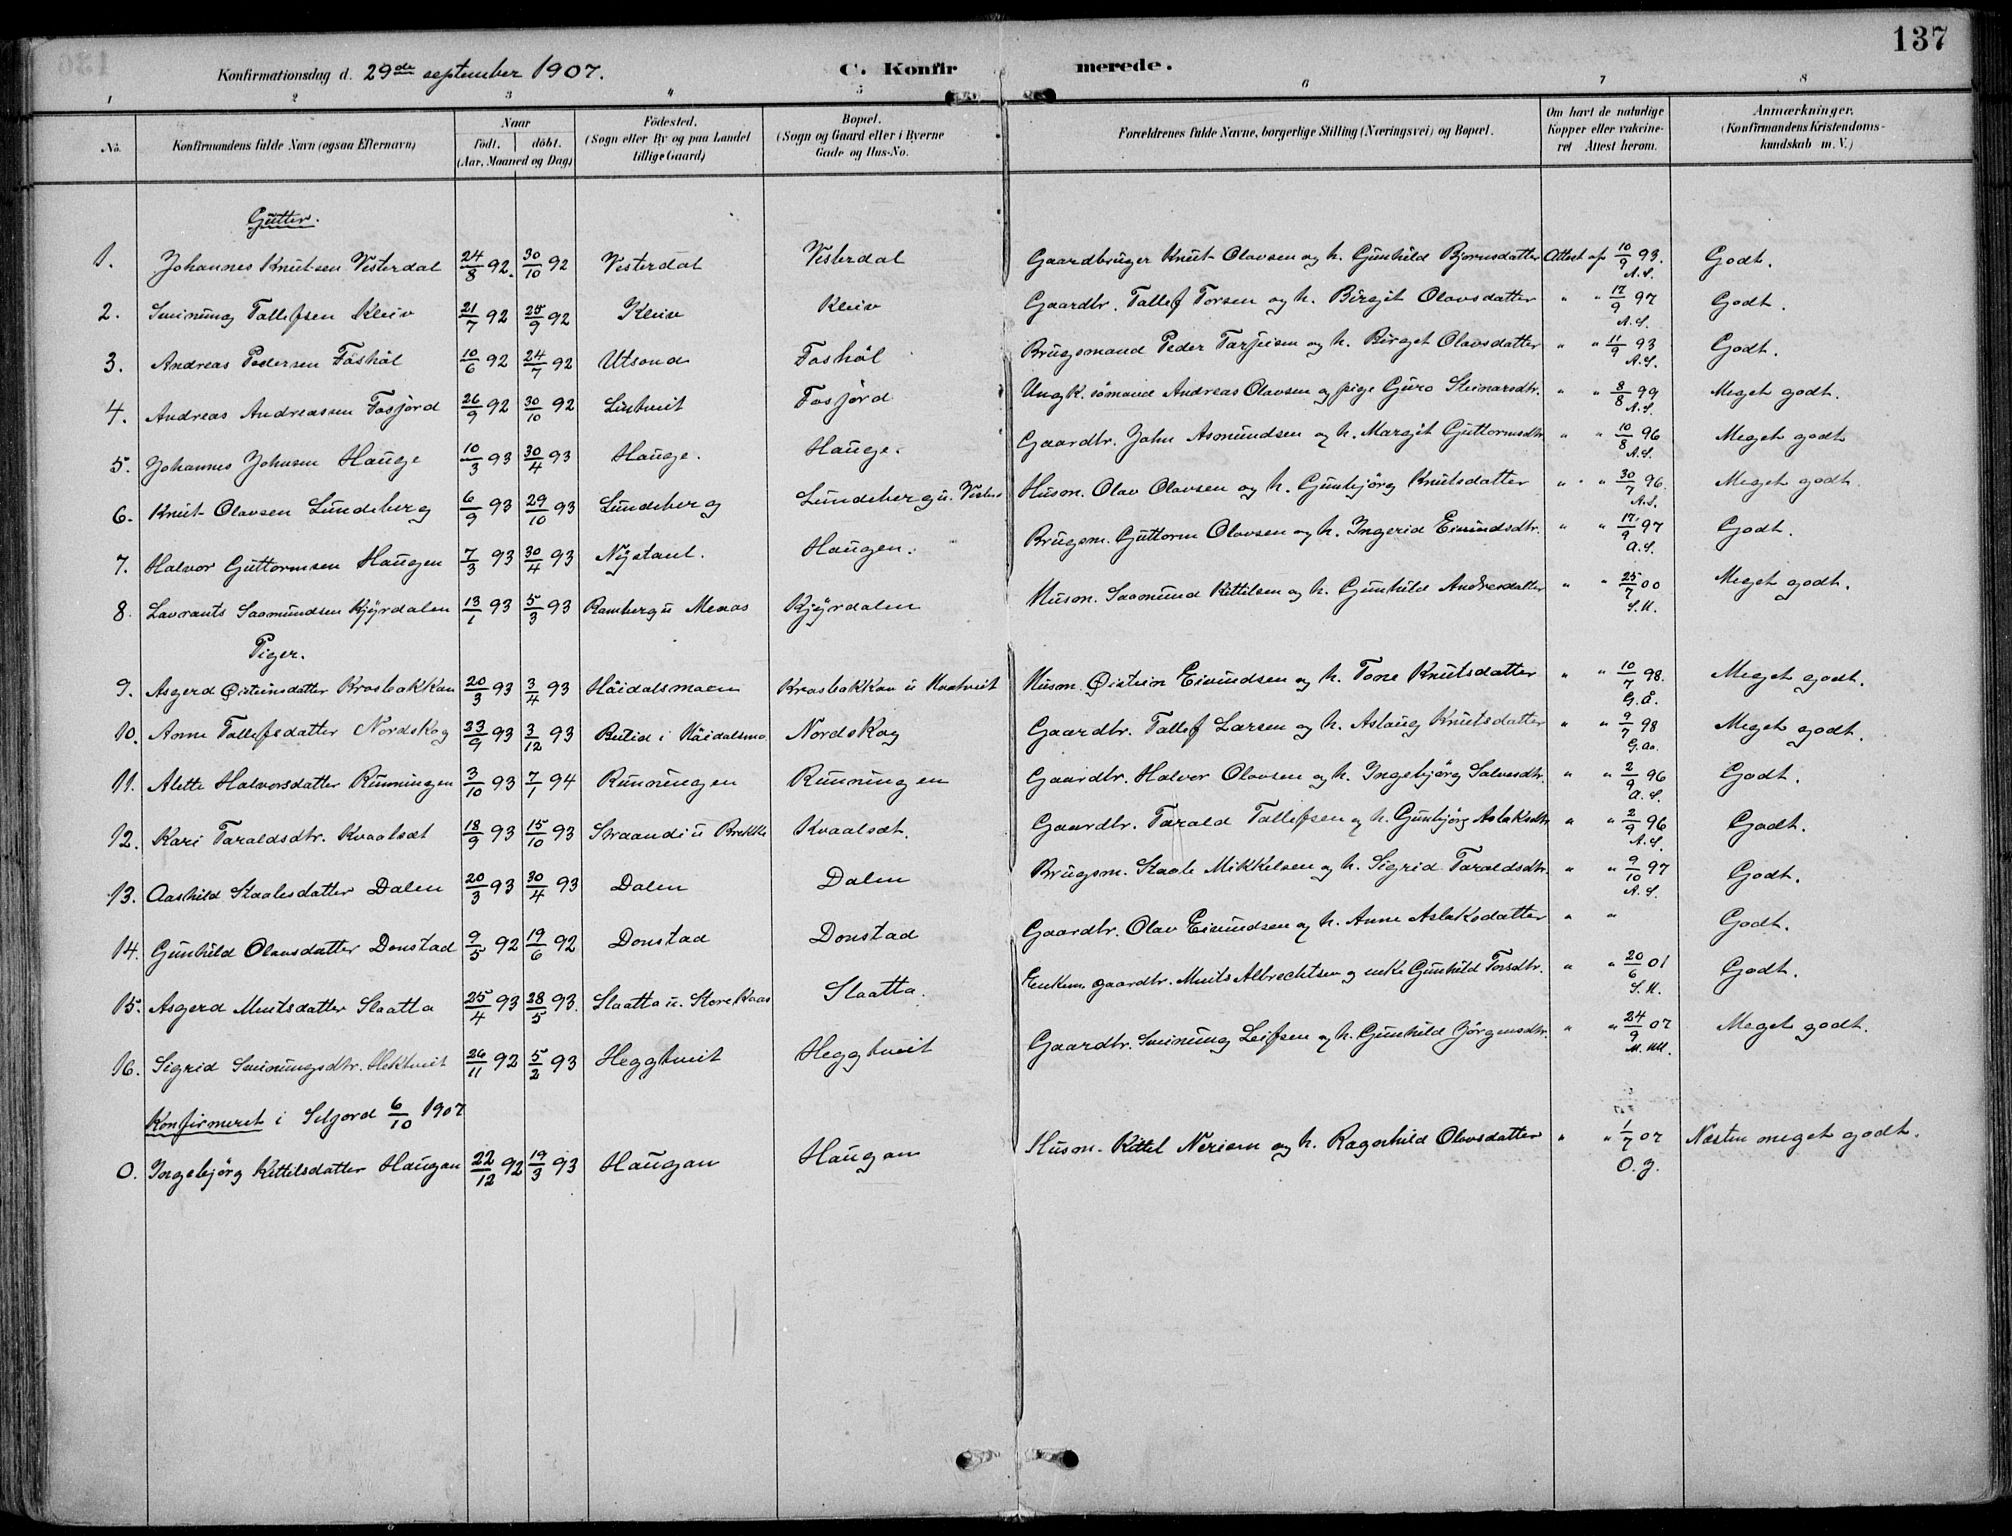 137
Konfirmationsdag d. 29de september 1907. C. Konfirmerede.
1 2 3 4 5 6 7 8
No. Konfirmandens fulde Navn (ogsaa Efternavn) Naar født. døbt. (Aar, Maaned og Dag) Fødested. (Sogn eller By og paa Landet tillige Gaard) Bopæl. (Sogn og Gaard eller i Byerne Gade og Hus-No. Forældrenes fulde Navne, borgerlige Stilling (Næringsvei) og Bopæl. Om havt de naturlige Kopper eller vakcineret Attest herom. Anmærkninger. (Konfirmandens Kristendomskundskab m. V.)
Gutter.
1. Johannes Knutsen Vesterdal 24/8 92. 30/10 92 Vesterdal Vesterdal Gaardbruger Knut Olavsen og h. Gunhild Bjørnsdatter Attest af 10/9 93. A.S. Godt.
2. Sveinung Tallefsen Kleiv 21/7 92 25/9 92 Kleiv Kleiv Gaardbr. Tallef Torsen og h. Birgit Olavsdatter " " 17/9 97 A.S. Godt.
3. Andreas Pedersen Foshól 10/6 92 24/7 92 Utsond Foshól Brugsmand Peder Tarjeisen og h. Birget Olavsdatter " " 11/9 93 A.S. Godt.
4. Andreas Andreassen Fosjord 26/9 92 30/10 92 Lintveit Fosjörd Ungk. sömand Andreas Olavsen og pige Guro Steinarsdtr. " " 8/8 99 A.S. Meget godt.
5. Johannes Johnsen Hauge 10/3 93 30/4 93 Hauge. Hauge. Gaardbr. John Asmundsen og h. Margit Guttormsdtr " " 10/8 96 A.S. Meget godt
6. Knut Olavsen Lundeberg 6/9 93 29/10 93 Lundeberg Lundeberg u. Vesterd Husm. Olav Olavsen og h. Gunbjörg Knutsdatter " " 30/7 96. A.S. Meget godt.
7. Halvor Guttormsen Haugen 7/3 93 30/4 93 Nystaul. Haugen. Brugsm. Guttorm Olavsen og h. Ingerid Eivindsdtr. " " 17/9 97 A.S. Godt.
8. Lavrants Saamundsen Kjyrdalen 13/1 93 5/3 93 Ramberg u Menas Kjyrdalen Husm. Saamund Kittilsen og h. Gunhild Andresdatter " " 25/7 00 S.U. Meget godt.
Piger.
9. Asgerd Øisteinsdatter Krosbakkan 20/3 93 3/4 93 Háidalsmoen Krosbakkan u Kaatveit Husm. Øistein Eivindsen og h. Tone Knutsdatter " " 10/7 98. G.Å. Meget godt.
10. Anne Tallefsdatter Nordskog 23/9 93 3/12 93 Butid i Háidalsmo. Nordskog Gaardbr. Tallef Larsen og h. Aslaug Knutsdatter " " 9/7 98 G.Aa. Meget godt.
11. Alette Halvorsdatter Runningen 3/10 93 7/1 94 Runningen Runningen Gaardbr. Halvor Olavsen og h. Ingebjörg Salvesdtr. " " 2/9 96 A.S. Godt.
12. Kari Taraldsdtr. Kvaalsæt 18/9 93 15/10 93 Straandi u Brekke Kvaalsæt. Gaardbr. Tarald Tallefsen og h. Gunbjörg Aslaksdtr " " 2/9 96 A.S. Godt.
13. Aashild Staalesdatter Dalen 20/3 93 30/4 93 Dalen Dalen Brugsm. Staale Mikkelsen og h. Sigrid Taraldsdtr. " " 9/10 97 A.S. Godt.
14. Gunhild Olavsdatter Donstad 9/5 92 19/6 92 Donstad Donstad Gaardbr. Olav Eivindsen og h. Anne Aslaksdatter " " Godt.
15. Asgerd Muntsdatter Slaatta 25/4 93 28/5 93. Slaatta u. Store Kaas Slaatta. Enkem. gaardbr. Munts Albrechtsen og enke Gunhild Torsdtr. " " 20/6 01 S.U. Godt.
16. Sigrid Sveinungsdtr. Hektveit 26/11 92 5/2 93 Heggtveit Heggtveit Gaardbr. Sveinung Leifsen og h. Gunhild Jörgensdtr. " " 24/9 07 M.M. Meget godt.
Konfirmeret i Seljord 6/10 1907
0. Ingebjörg Kittilsdatter Haugan 22/12 92 19/3 93 Haugan Haugan Husm. Kittel Neriem og h. Ragnhild Olavsdatter " " 1/7 07 O.J. Næsten meget godt.